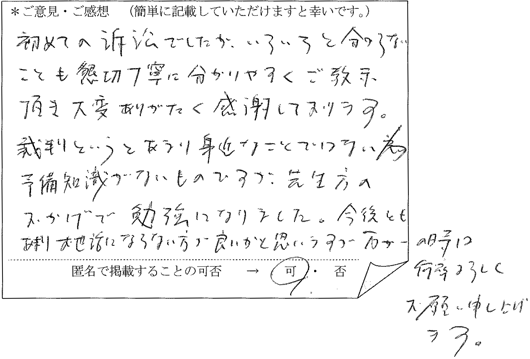 ＊ご意見・ご感想　(簡単に記載していただけますと幸いです。)
初めての訴訟でしたが、いろいろと分からない
ことも懇切丁寧に分かりやすくご教示
頂き大変ありがたく感謝しております。
裁判というとあまり身近なことではない為
予備知識がないものですが、先生方の
おかげで勉強になりました。今後とも
お世話にならない方が良いかと思いますが万が一
の時は
何卒よろしく
お願い申し上げ
ます。
匿名で掲載することの可否　→　可・否